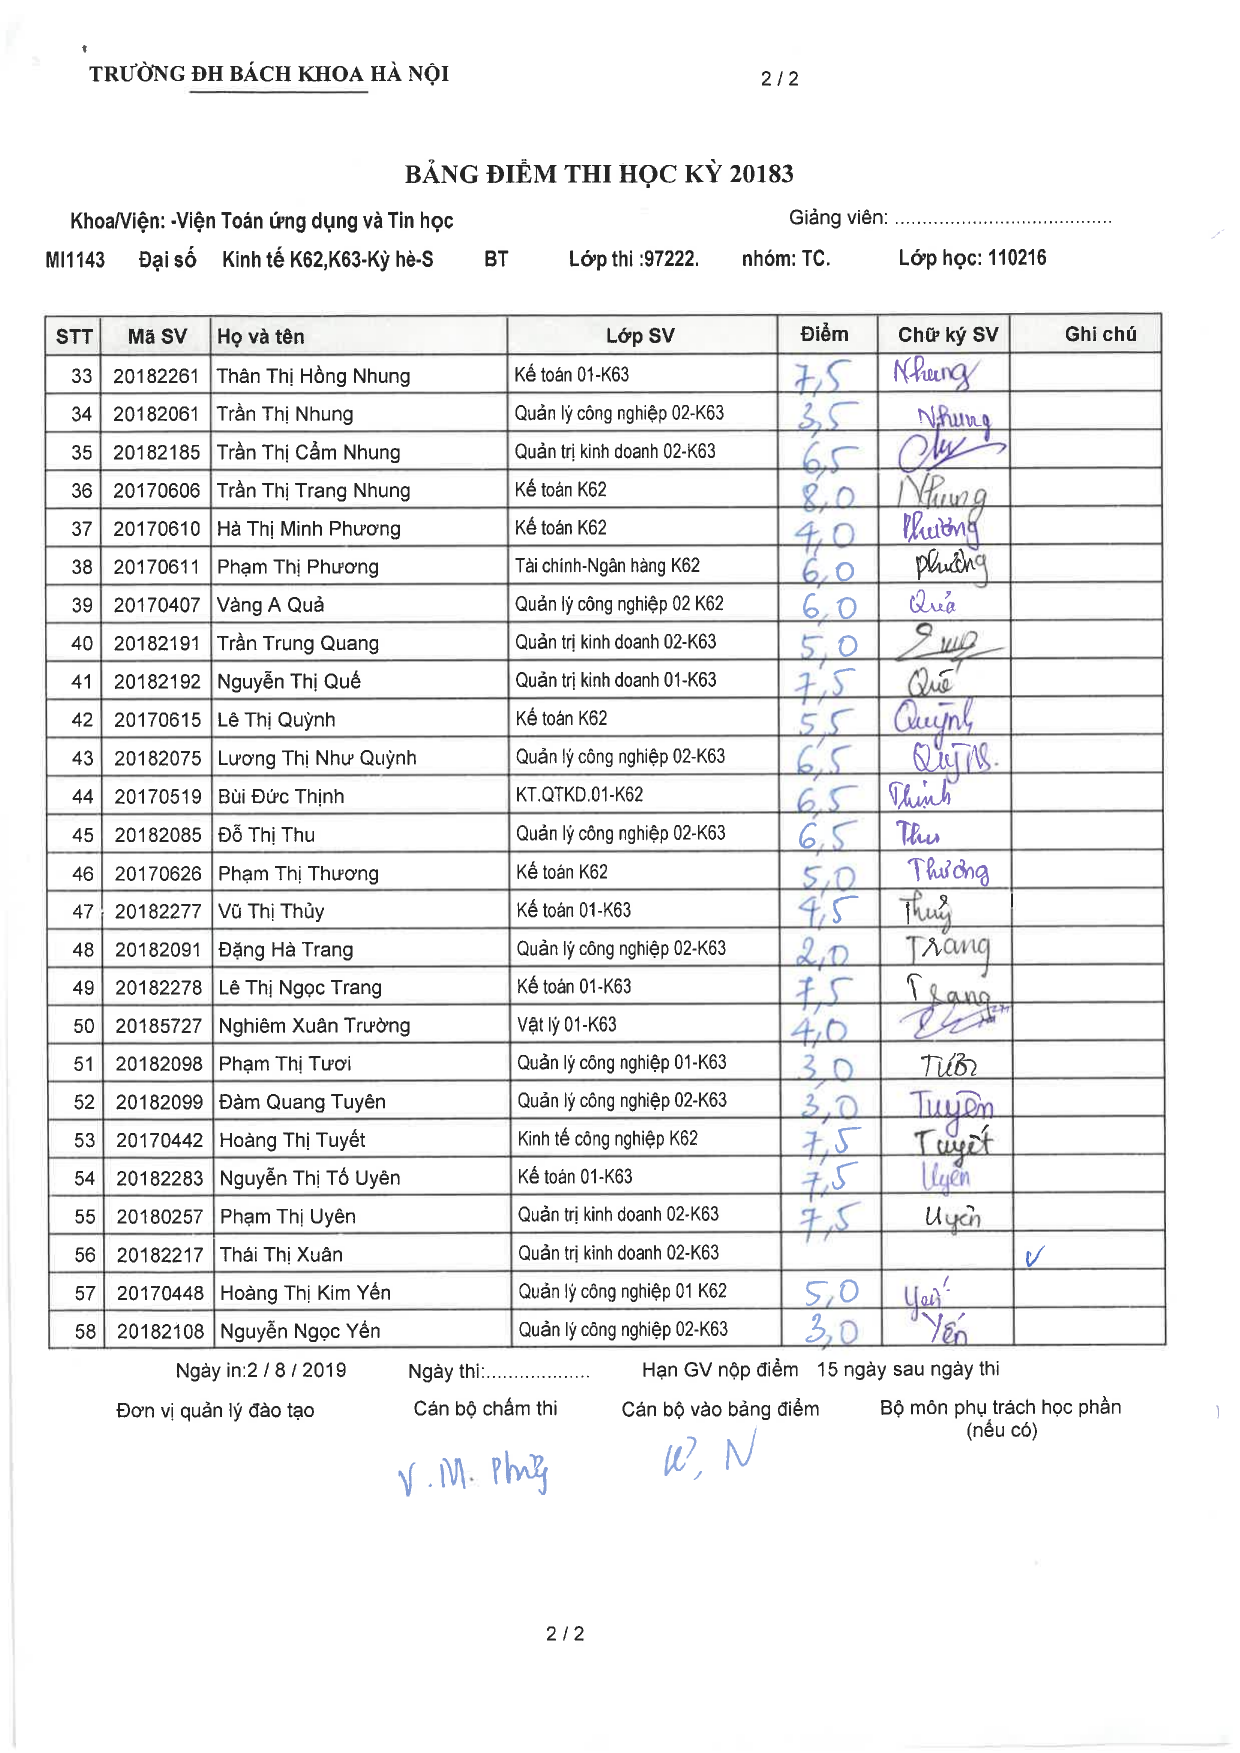 TRƯỜNG ĐH BÁCH KHOA HÀ NỘI 2 / 2
BẢNG ĐIỂM THI HỌC KỲ 20183
Khoa/Viện: -Viện Toán ứng dụng và Tin học Giảng viên: ........................................
MI1143 Đại số Kinh tế K62,K63-Kỳ hè-S BT Lớp thi :97222. nhóm: TC. Lớp học: 110216
STT Mã SV Họ và tên Lớp SV Điểm Chữ ký SV Ghi chú
33 20182261 Thân Thị Hồng Nhung Kế toán 01-K63 7,5 Nhung
34 20182061 Trần Thị Nhung Quản lý công nghiệp 02-K63 3,5 Nhung
35 20182185 Trần Thị Cẩm Nhung Quản trị kinh doanh 02-K63 6,5
36 20170606 Trần Thị Trang Nhung Kế toán K62 8,0 Nhung
37 20170610 Hà Thị Minh Phương Kế toán K62 4,0 Phương
38 20170611 Phạm Thị Phương Tài chính-Ngân hàng K62 6,0 phường
39 20170407 Vàng A Quả Quản lý công nghiệp 02 K62 6,0 Quả
40 20182191 Trần Trung Quang Quản trị kinh doanh 02-K63 5,0
41 20182192 Nguyễn Thị Quế Quản trị kinh doanh 01-K63 7,5 Quế
42 20170615 Lê Thị Quỳnh Kế toán K62 5,5 Quỳnh
43 20182075 Lương Thị Như Quỳnh Quản lý công nghiệp 02-K63 6,5
44 20170519 Bùi Đức Thịnh KT.QTKD.01-K62 6,5 Thịnh
45 20182085 Đỗ Thị Thu Quản lý công nghiệp 02-K63 6,5 Thu
46 20170626 Phạm Thị Thương Kế toán K62 5,0 Thương
47 20182277 Vũ Thị Thủy Kế toán 01-K63 4,5 Thuỷ
48 20182091 Đặng Hà Trang Quản lý công nghiệp 02-K63 2,0 Trang
49 20182278 Lê Thị Ngọc Trang Kế toán 01-K63 7,5 Trang
50 20185727 Nghiêm Xuân Trường Vật lý 01-K63 4,0
51 20182098 Phạm Thị Tươi Quản lý công nghiệp 01-K63 3,0 Tươi
52 20182099 Đàm Quang Tuyên Quản lý công nghiệp 02-K63 3,0 Tuyên
53 20170442 Hoàng Thị Tuyết Kinh tế công nghiệp K62 7,5 Tuyết
54 20182283 Nguyễn Thị Tố Uyên Kế toán 01-K63 7,5 Uyên
55 20180257 Phạm Thị Uyên Quản trị kinh doanh 02-K63 7,5 Uyên
56 20182217 Thái Thị Xuân Quản trị kinh doanh 02-K63
57 20170448 Hoàng Thị Kim Yến Quản lý công nghiệp 01 K62 5,0 Yến
58 20182108 Nguyễn Ngọc Yến Quản lý công nghiệp 02-K63 3,0 Yến
Ngày in:2 / 8 / 2019 Ngày thi:................... Hạn GV nộp điểm 15 ngày sau ngày thi
Đơn vị quản lý đào tạo Cán bộ chấm thi Cán bộ vào bảng điểm Bộ môn phụ trách học phần
(nếu có)
V. M.
2 / 2